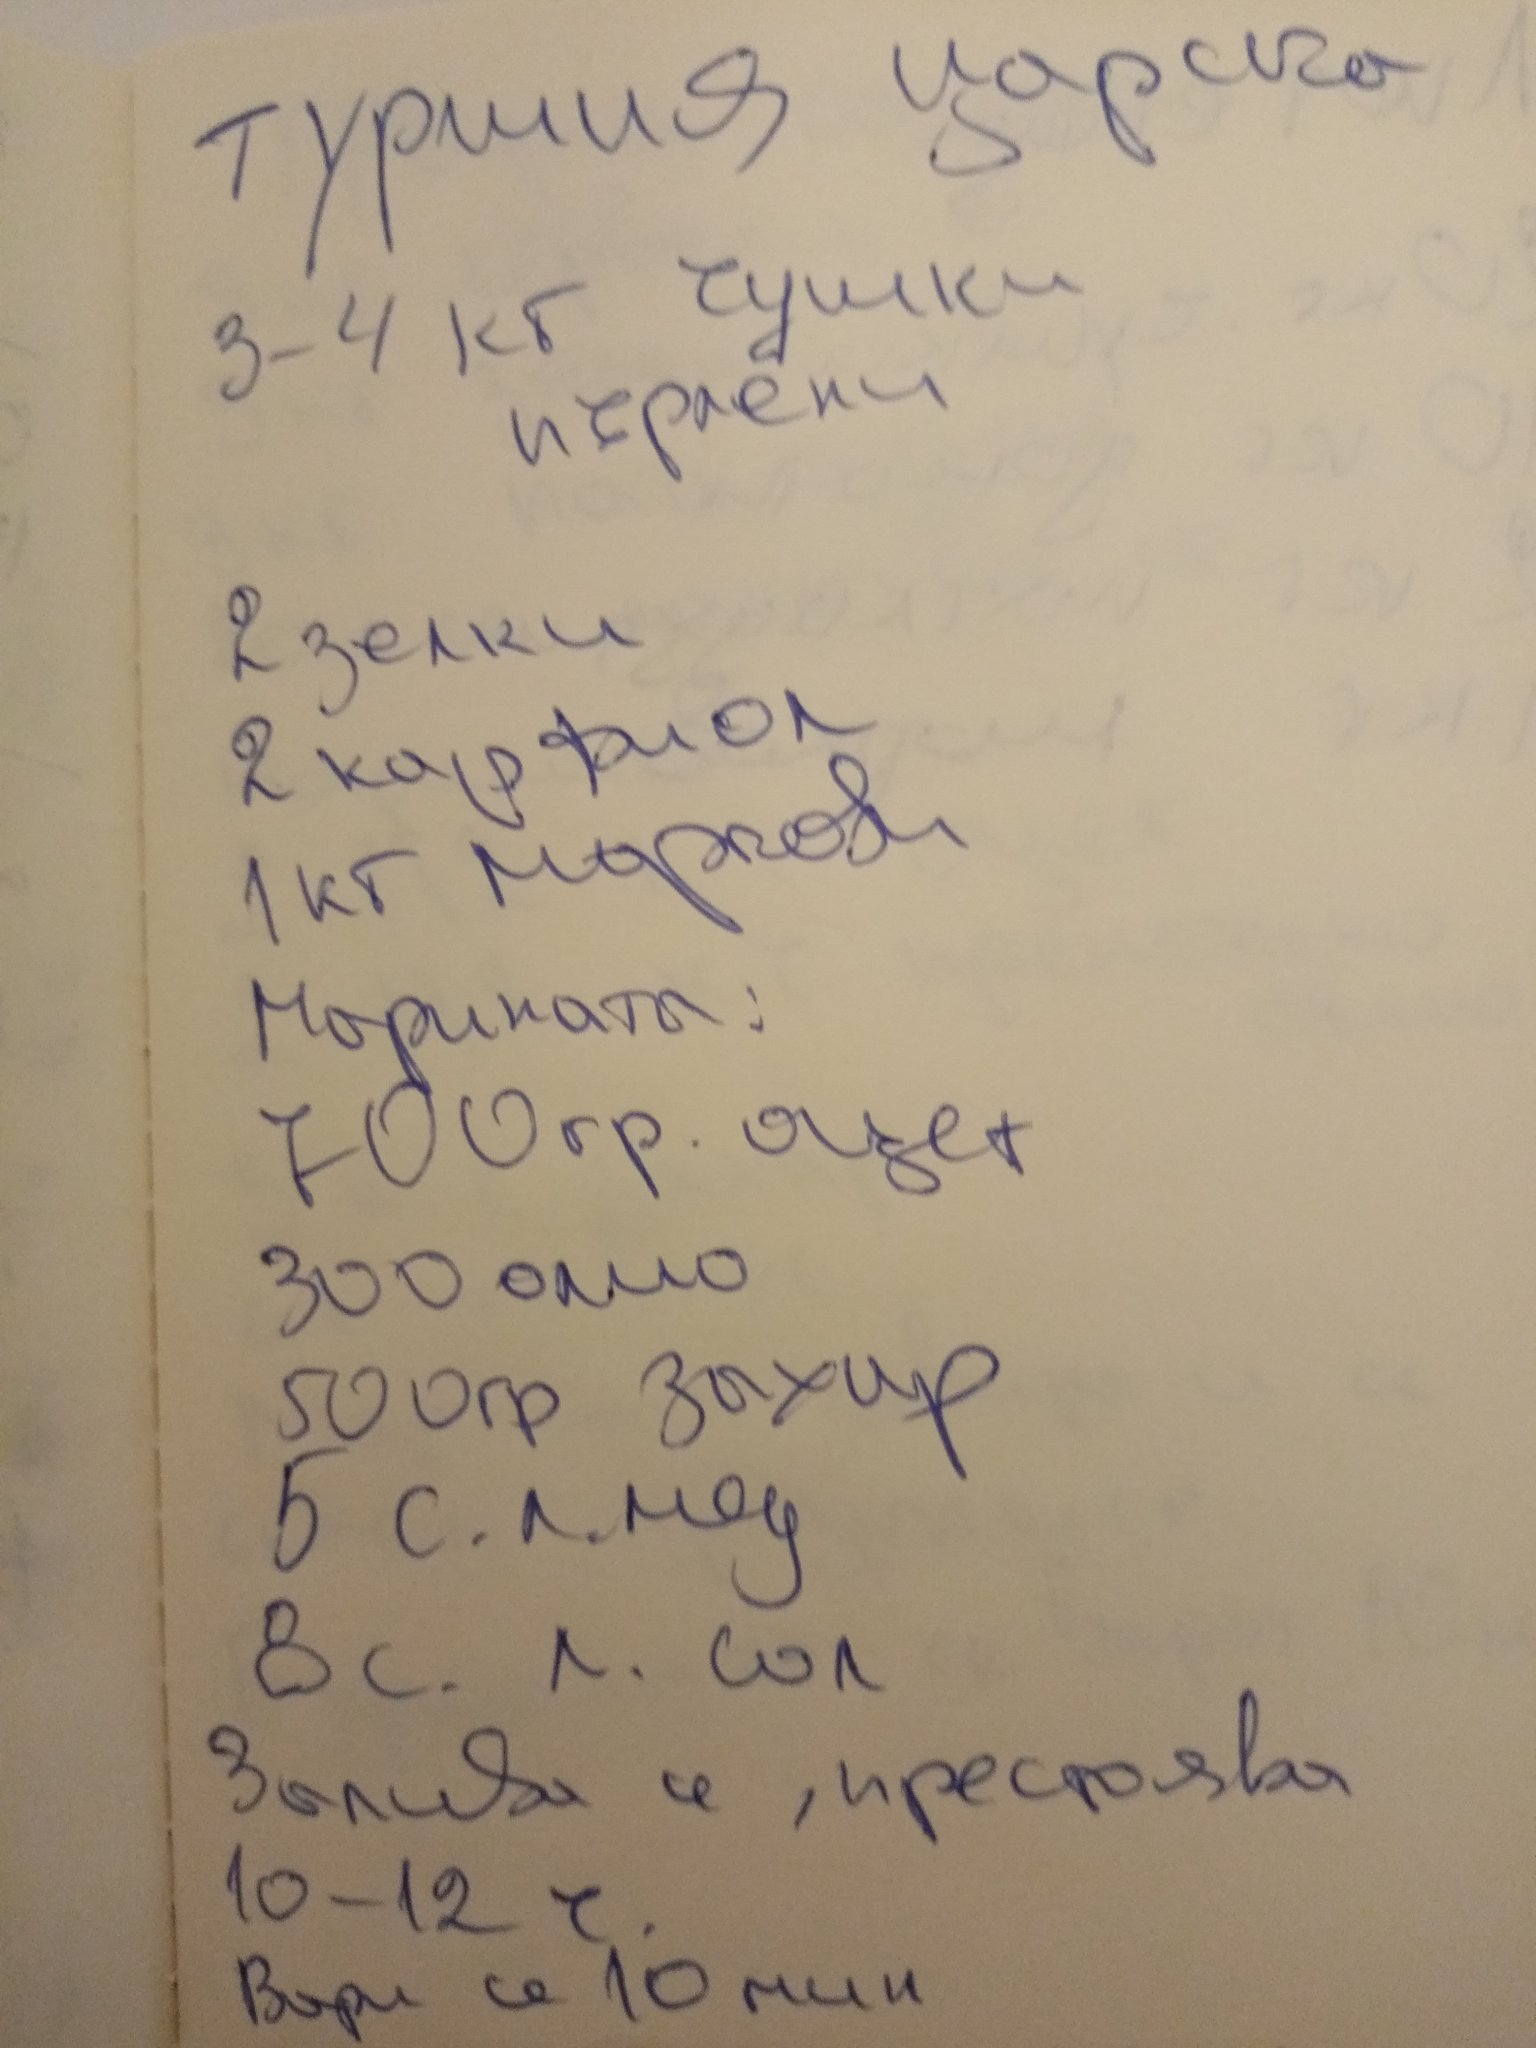 Туршия царска
3-4 кг чушки
и червени
2 зелки
2 карфиол
1 кг моркови
Марината:
700 гр. оцет
300 олио
500гр захар
5 с.л. мед
8 с. л. сол
Залива се, престоява
10-12 ч.
Вари се 10 мин